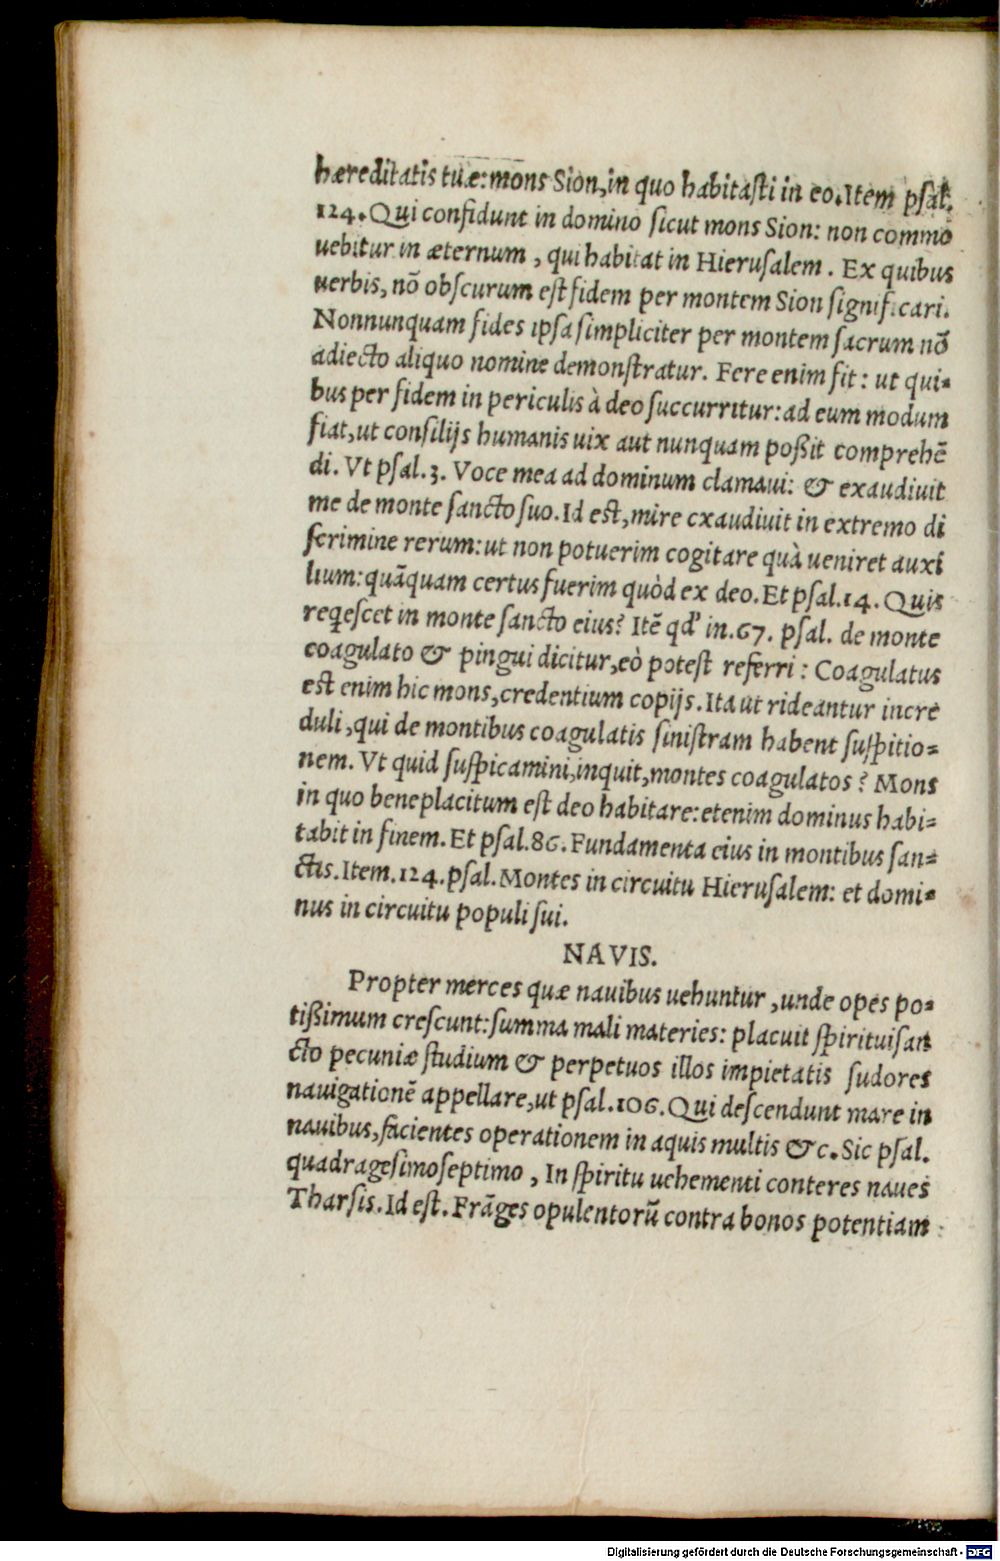 hæreditatis tuæ: mons Sion, in quo habitasti in eo. Item psal.
124. Qui confidunt in domino sicut mons Sion: non commo
uebitur in æternum, qui habitat in Hierusalem. Ex quibus
uerbis, nō obscurum est fidem per montem Sion significari.
Nonnunquam fides ipsa simpliciter per montem sacrum nō
adiecto aliquo nomine demonstratur. Fere enim fit: ut qui-
bus per fidem in periculis à deo succurritur: ad eum modum
fiat, ut consilijs humanis uix aut nunquam poßit comprehē
di. Vt psal. 3. Voce mea ad dominum clamaui: & exaudiuit
me de monte sancto suo. Id est, mire exaudiuit in extremo di
scrimine rerum: ut non potuerim cogitare quà ueniret auxi
lium: quāquam certus fuerim quòd ex deo. Et psal. 14. Quis
reqescet in monte sancto eius? Itē qd' in. 67. psal. de monte
coagulato & pingui dicitur, eò potest referri: Coagulatus
est enim hic mons, credentium copijs. Ita ut rideantur incre
duli, qui de montibus coagulatis sinistram habent suspitio-
nem. Vt quid suspicamini, inquit, montes coagulatos? Mons
in quo beneplacitum est deo habitare: etenim dominus habi-
tabit in finem. Et psal. 86. Fundamenta eius in montibus san-
ctis. Item. 124. psal. Montes in circuitu Hierusalem: et domi-
nus in circuitu populi sui.
NAVIS.
Propter merces quæ nauibus uehuntur, unde opes po-
tißimum crescunt: summa mali materies: placuit spiritui san
cto pecuniæ studium & perpetuos illos impietatis sudores
nauigationē appellare, ut psal. 106. Qui descendunt mare in
nauibus, facientes operationem in aquis multis &c. Sic psal.
quadragesimoseptimo, In spiritu uehementi conteres naues
Tharsis. Id est. Frāges opulentorū contra bonos potentiam
Digitalisierung gefördert durch die Deutsche Forschungsgemeinschaft - DFG